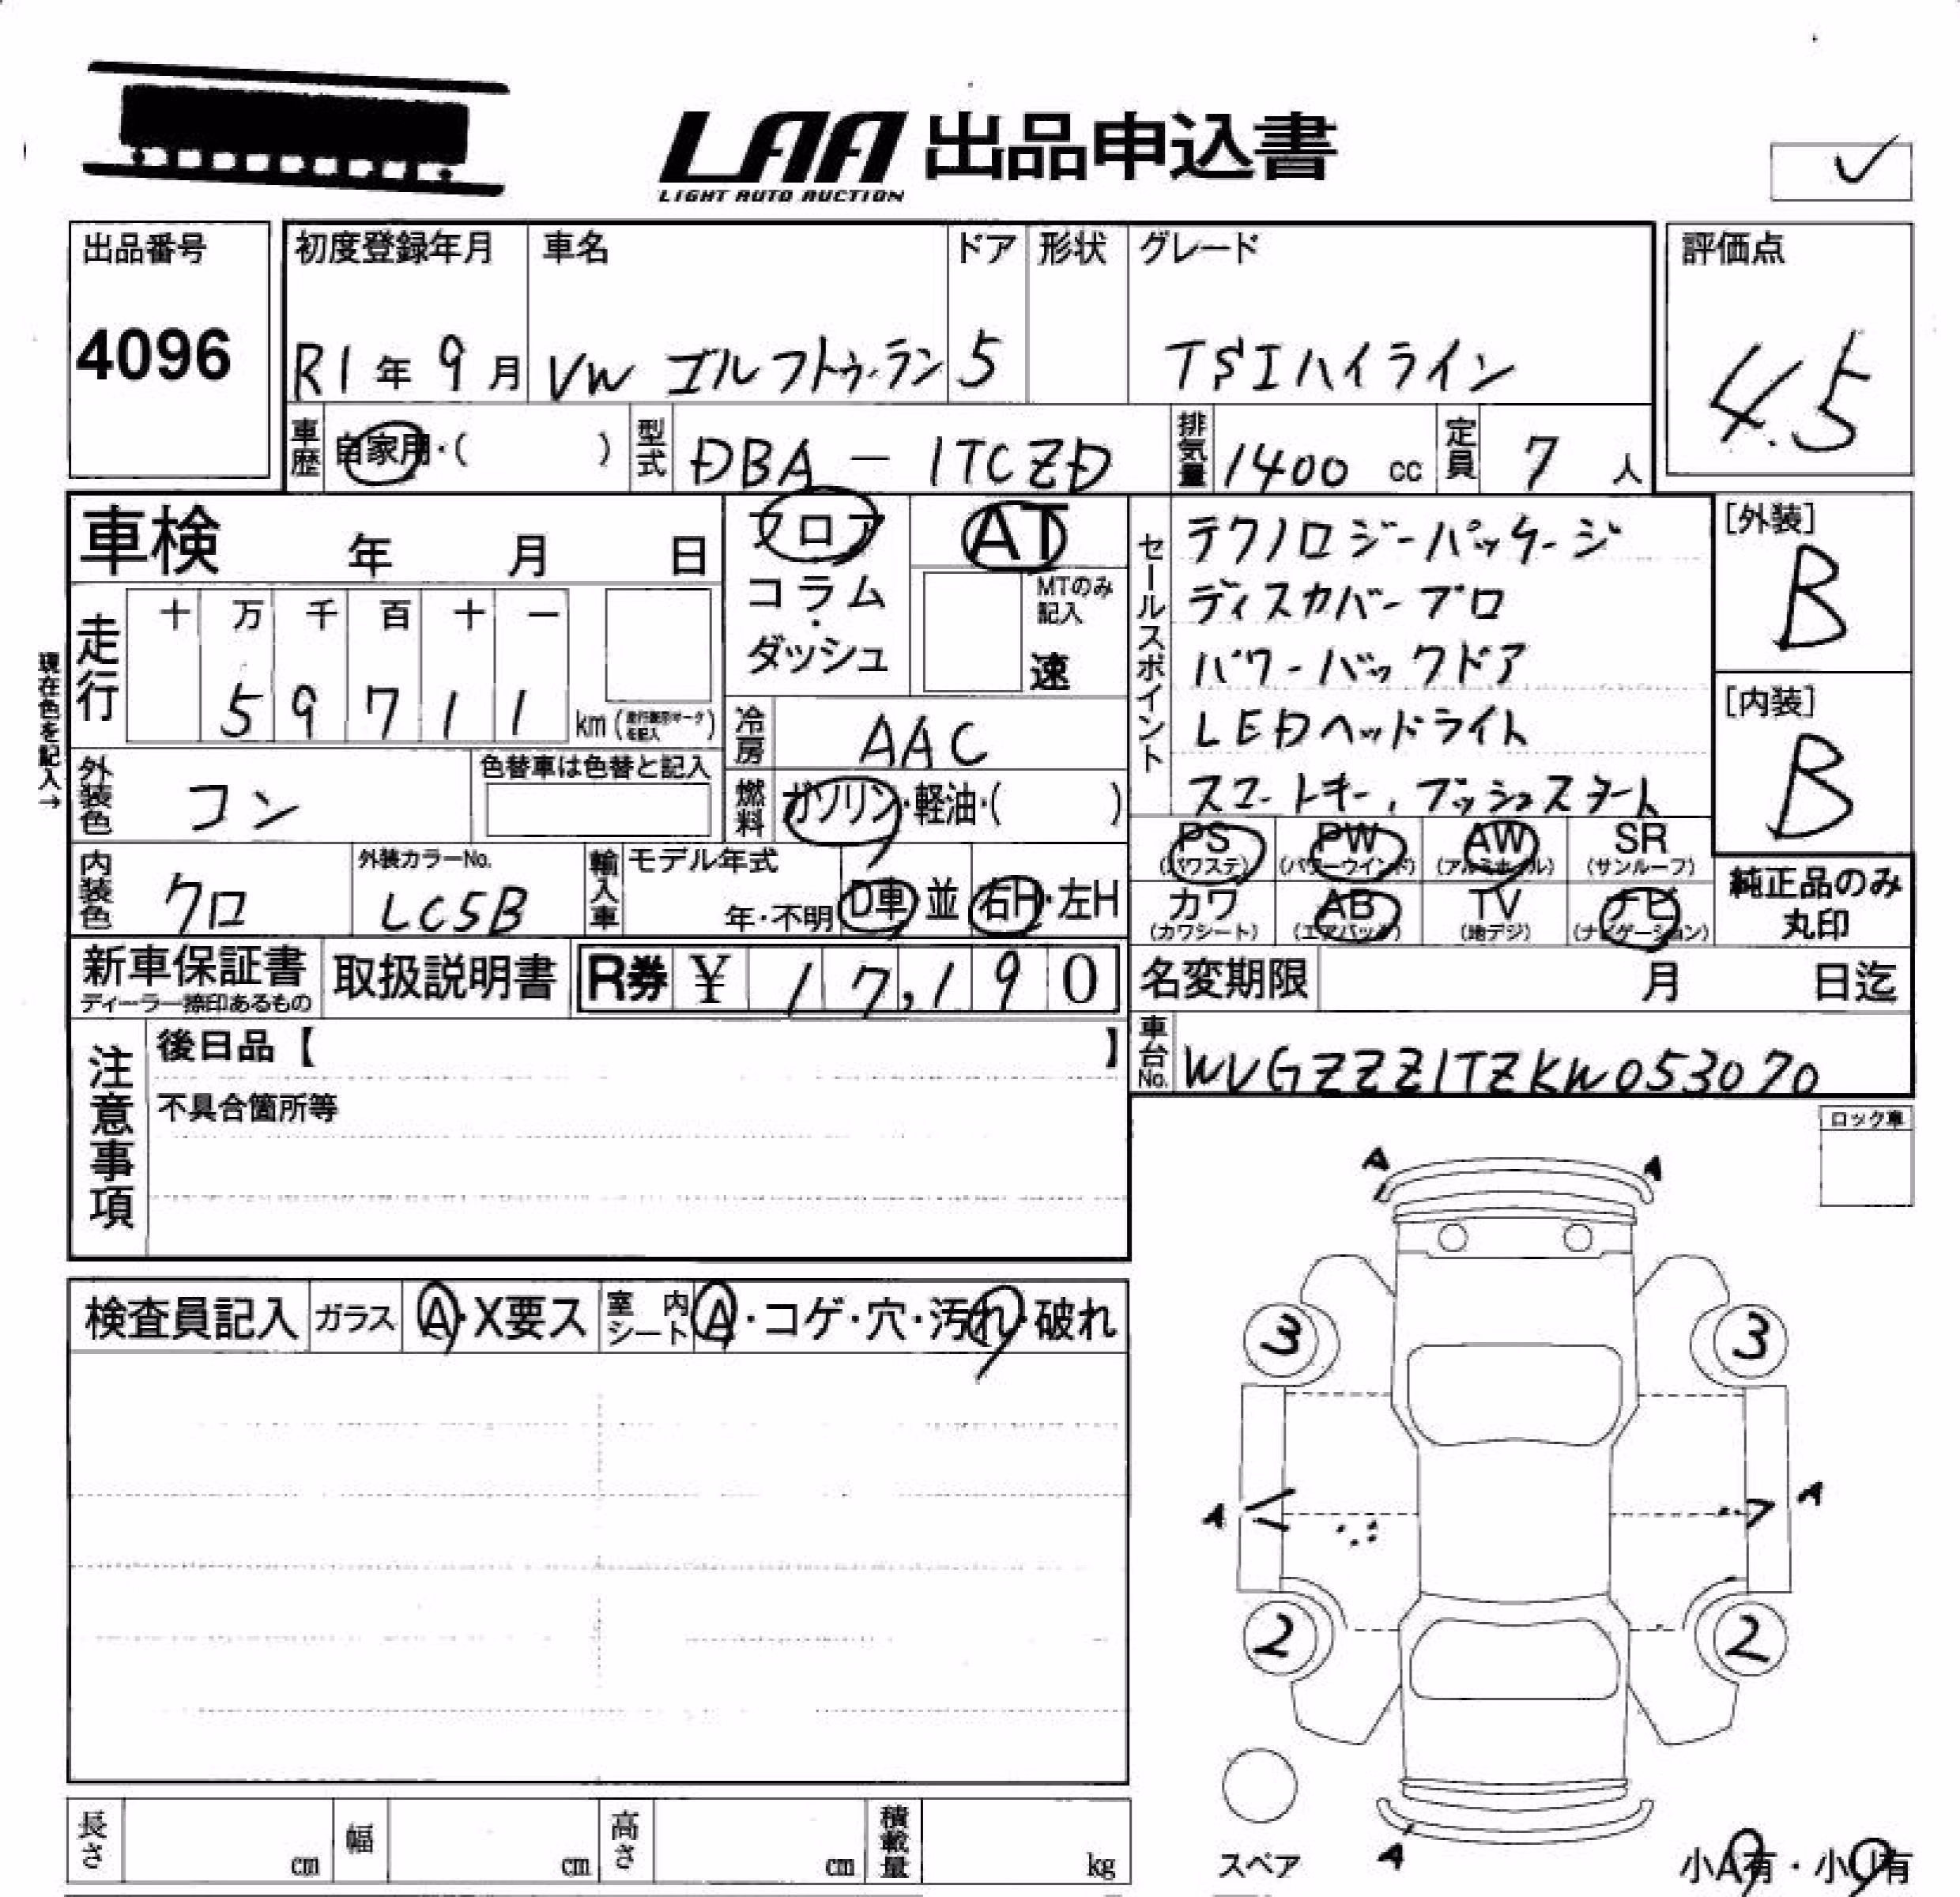 LAA 出品申込書
LIGHT AUTO AUCTION
出品番号
4096
初度登録年月
R1年 9月
車名
VW ゴルフトゥーラン
ドア
5
形状
グレード
TSIハイライン
評価点
4.5
車歴 自家用・( )
型式 DBA - 1TCZD
排気量 1400 cc
定員 7 人
車検 年 月 日
フロア
コラム・
ダッシュ
AT
MTのみ記入
速
走行
十 万 千 百 十 一
5 9 7 1 1 km
現在色を記入→
冷房 AAC
外装色 コン
色替車は色替と記入
燃料 ガソリン・軽油・( )
内装色 クロ
外装カラーNo.
LC5B
輸入車
モデル年式
年・不明
D車・並
右H・左H
セールスポイント
テクノロジーパッケージ
ディスカバープロ
パワーバックドア
LEDヘッドライト
スマートキー、プッシュスタート
[外装]
B
[内装]
B
PS (パワステ)
PW (パワーウインド)
AW (アルミホイール)
SR (サンルーフ)
カワ (カワシート)
AB (エアバック)
TV (地デジ)
ナビ (ナビゲーション)
純正品のみ丸印
新車保証書
ディーラー捺印あるもの
取扱説明書
R券 ¥ 17,190
名変期限 月 日迄
車台No. WVGZZZ1TZKW053070
注意事項
後日品【 】
不具合箇所等
ロック車
検査員記入
ガラス A・X要ス
室内シート A・コゲ・穴・汚れ・破れ
A A
3 3
A A
2 2
A
スペア
小A有・小U有
長さ cm
幅 cm
高さ cm
積載量 kg